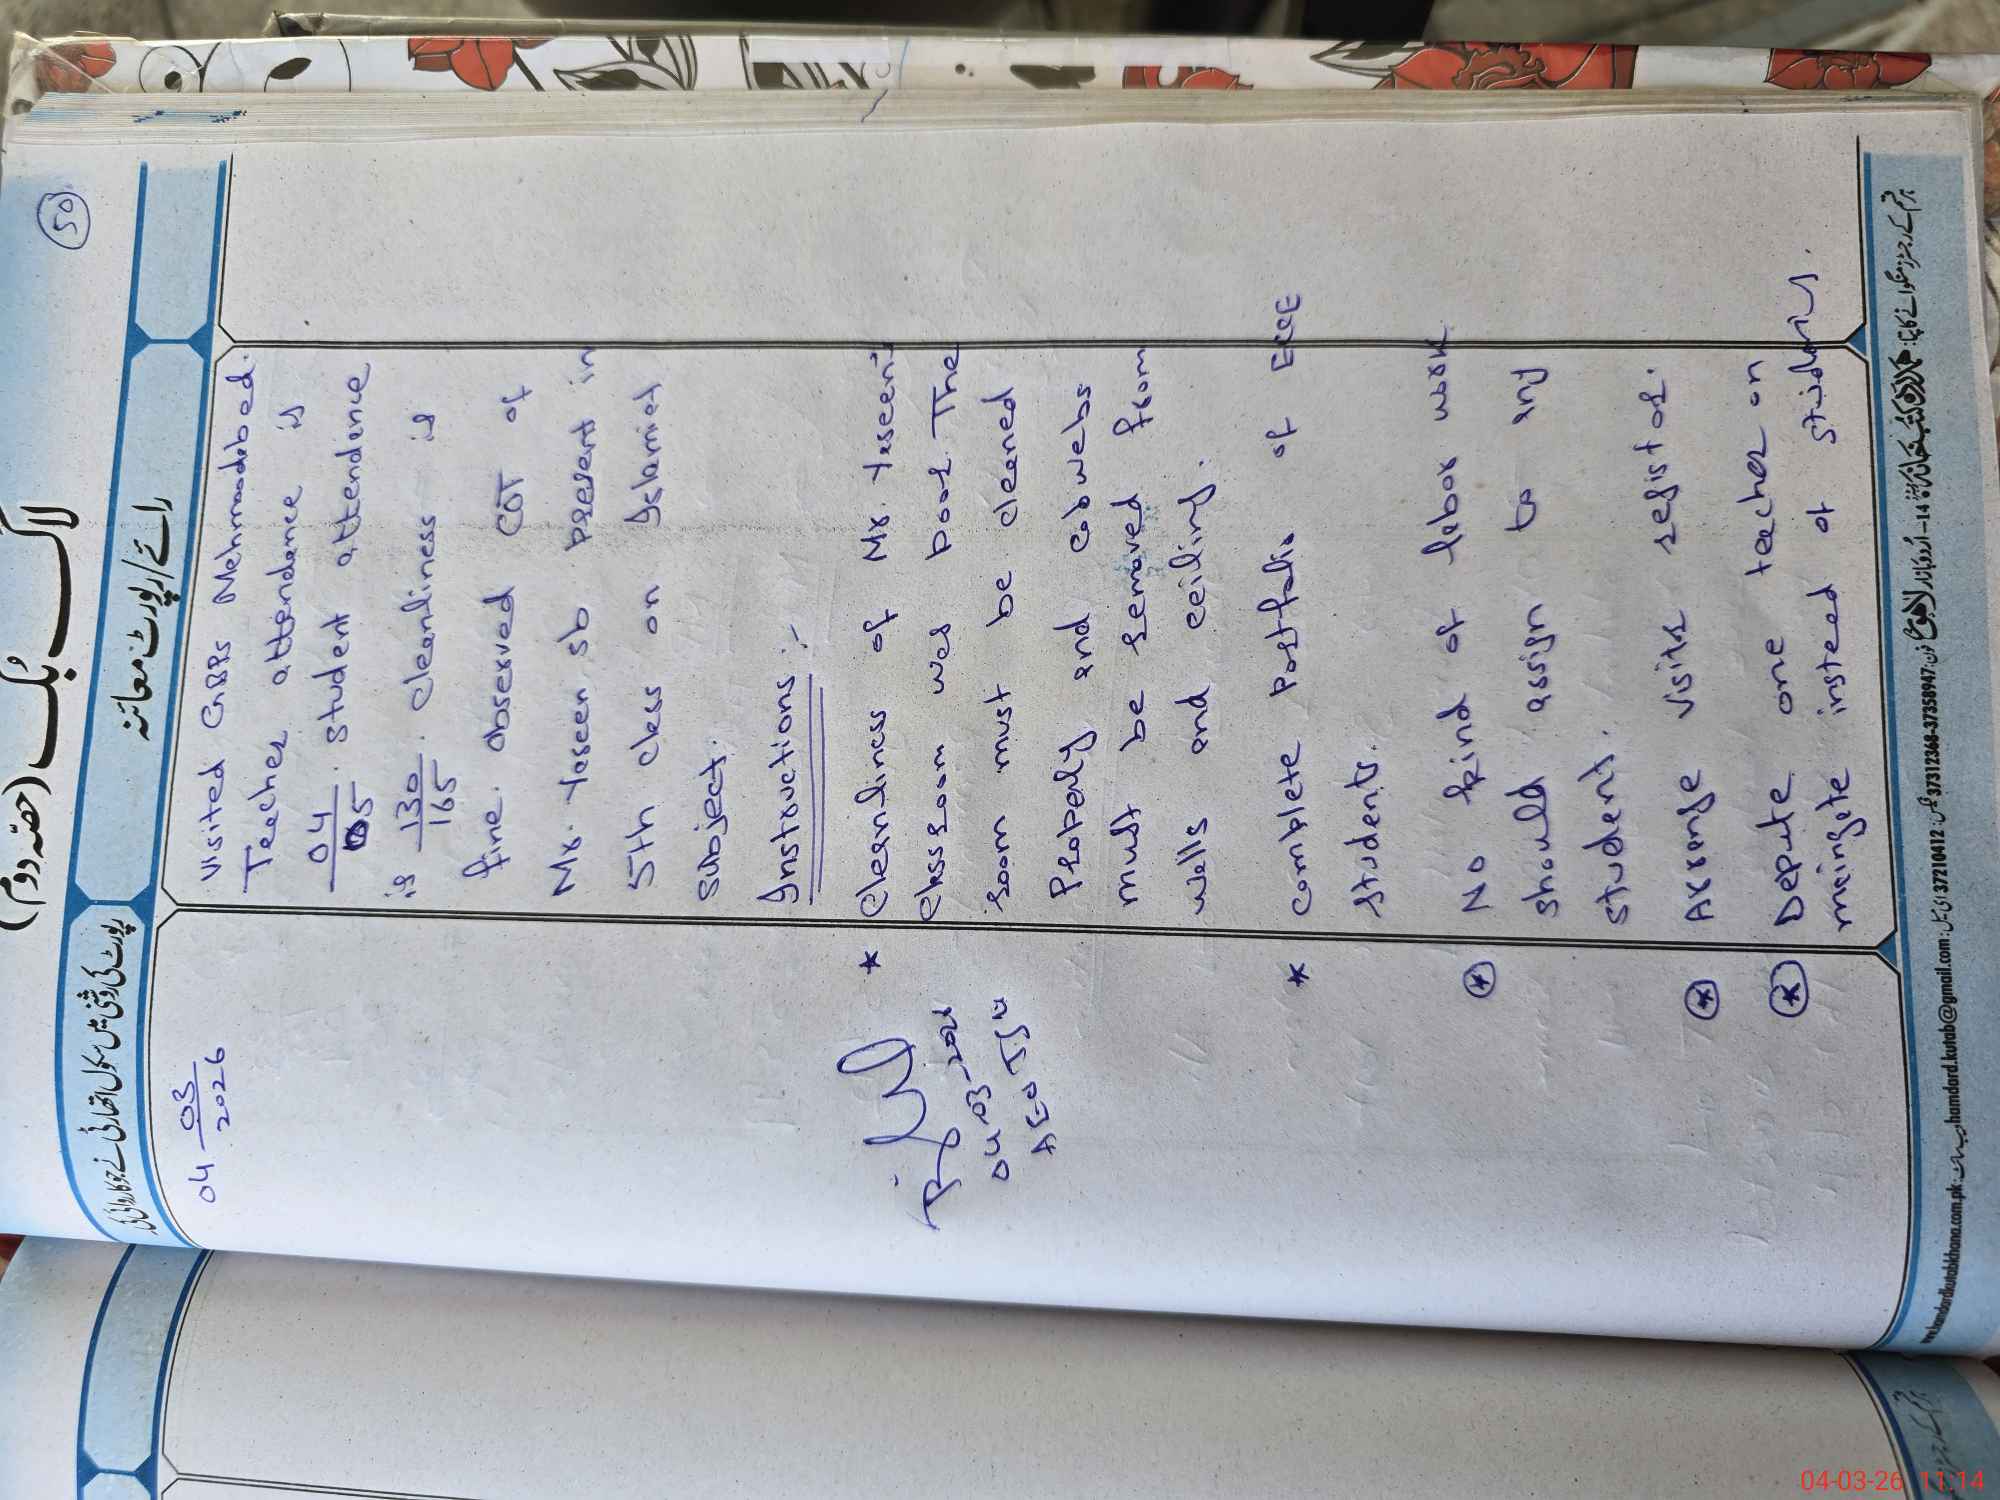 50
لاگ بُک (حصّہ دوم)
رپورٹ کی روشنی میں سکول اتھارٹی نے جو کاروائی کی
رائے/رپورٹ معائنہ
04 03/2026
Visited GBPS Mehmodabad.
Teacher attendence is
04/05. Student attendence
is 130/165. Cleanliness is
fine. observed COT of
Mr. Yaseen sb present in
5th class on Islamiat
subject.
Instructions :-
* Cleanliness of Mr. Yaseen's
classroom was poor. The
room must be cleaned
Properly and cobwebs
must be removed from
walls and ceiling.
* Complete Portfolio of ECCE
students.
* No kind of labor work
should assign to any
student.
* Arrange visitor register.
* Depute one teacher on
maingate insteed of students.
04-03-2026
AEO
www.hamdardkutabkhana.com.pk ویب سائٹ: hamdard.kutab@gmail.com ای میل: 37210412 فیکس: 37312368-37358947 فون:
04-03-26 11:14